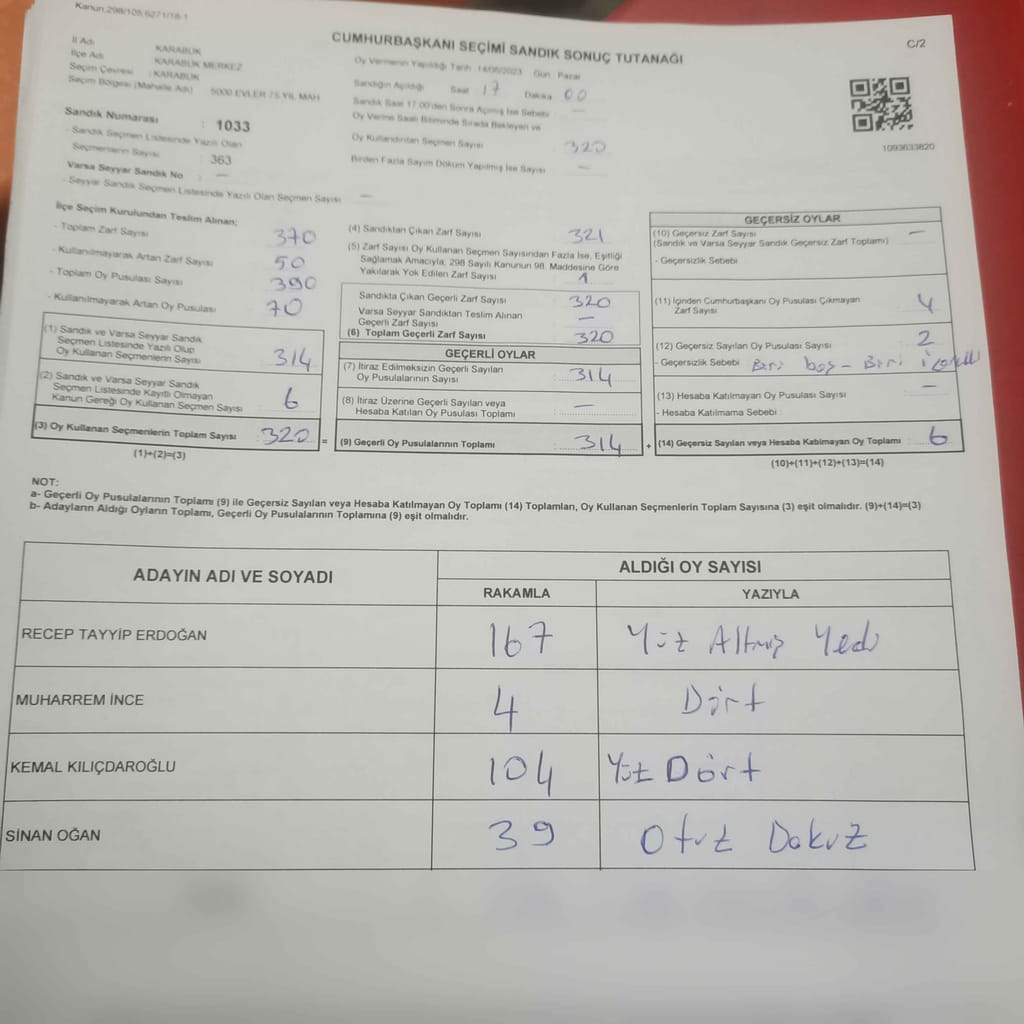 Kanun:298/105,6271/18-1
C/2
CUMHURBAŞKANI SEÇİMİ SANDIK SONUÇ TUTANAĞI
İl Adı KARABÜK
İlçe Adı KARABÜK MERKEZ
Seçim Çevresi : KARABÜK
Seçim Bölgesi (Mahalle Adı) 5000 EVLER 75.YIL MAH
Sandık Numarası : 1033
- Sandık Seçmen Listesinde Yazılı Olan
Seçmenlerin Sayısı : 363
Varsa Seyyar Sandık No : —
- Seyyar Sandık Seçmen Listesinde Yazılı Olan Seçmen Sayısı —
Oy Vermenin Yapıldığı Tarih :14/05/2023 Gün : Pazar
Sandığın Açıldığı Saat 17 Dakika 00
Sandık Saat 17.00'den Sonra Açılmış İse Sebebi —
Oy Verme Saati Bitiminde Sırada Bekleyen ve
Oy Kullandırılan Seçmen Sayısı 320
Birden Fazla Sayım Döküm Yapılmış İse Sayısı —
1093633820
İlçe Seçim Kurulundan Teslim Alınan;
- Toplam Zarf Sayısı 370
- Kullanılmayarak Artan Zarf Sayısı 50
- Toplam Oy Pusulası Sayısı 390
- Kullanılmayarak Artan Oy Pusulası 70
(1) Sandık ve Varsa Seyyar Sandık
Seçmen Listesinde Yazılı Olup
Oy Kullanan Seçmenlerin Sayısı 314
(2) Sandık ve Varsa Seyyar Sandık
Seçmen Listesinde Kayıtlı Olmayan
Kanun Gereği Oy Kullanan Seçmen Sayısı 6
(3) Oy Kullanan Seçmenlerin Toplam Sayısı : 320 =
(1)+(2)=(3)
(4) Sandıktan Çıkan Zarf Sayısı 321
(5) Zarf Sayısı Oy Kullanan Seçmen Sayısından Fazla İse, Eşitliği
Sağlamak Amacıyla, 298 Sayılı Kanunun 98. Maddesine Göre
Yakılarak Yok Edilen Zarf Sayısı 1
Sandıkta Çıkan Geçerli Zarf Sayısı 320
Varsa Seyyar Sandıktan Teslim Alınan
Geçerli Zarf Sayısı —
(6) Toplam Geçerli Zarf Sayısı 320
GEÇERLİ OYLAR
(7) İtiraz Edilmeksizin Geçerli Sayılan
Oy Pusulalarının Sayısı 314
(8) İtiraz Üzerine Geçerli Sayılan veya
Hesaba Katılan Oy Pusulası Toplamı —
(9) Geçerli Oy Pusulalarının Toplamı 314 +
GEÇERSİZ OYLAR
(10) Geçersiz Zarf Sayısı —
(Sandık ve Varsa Seyyar Sandık Geçersiz Zarf Toplamı)
- Geçersizlik Sebebi
(11) İçinden Cumhurbaşkanı Oy Pusulası Çıkmayan
Zarf Sayısı 4
(12) Geçersiz Sayılan Oy Pusulası Sayısı 2
- Geçersizlik Sebebi Biri boş - Biri
(13) Hesaba Katılmayan Oy Pusulası Sayısı —
- Hesaba Katılmama Sebebi :
(14) Geçersiz Sayılan veya Hesaba Katılmayan Oy Toplamı 6
(10)+(11)+(12)+(13)=(14)
NOT:
a- Geçerli Oy Pusulalarının Toplamı (9) ile Geçersiz Sayılan veya Hesaba Katılmayan Oy Toplamı (14) Toplamları, Oy Kullanan Seçmenlerin Toplam Sayısına (3) eşit olmalıdır. (9)+(14)=(3)
b- Adayların Aldığı Oyların Toplamı, Geçerli Oy Pusulalarının Toplamına (9) eşit olmalıdır.
ADAYIN ADI VE SOYADI ALDIĞI OY SAYISI
RAKAMLA YAZIYLA
RECEP TAYYİP ERDOĞAN 167 Yüz Altmış Yedi
MUHARREM İNCE 4 Dört
KEMAL KILIÇDAROĞLU 104 Yüz Dört
SİNAN OĞAN 39 Otuz Dokuz